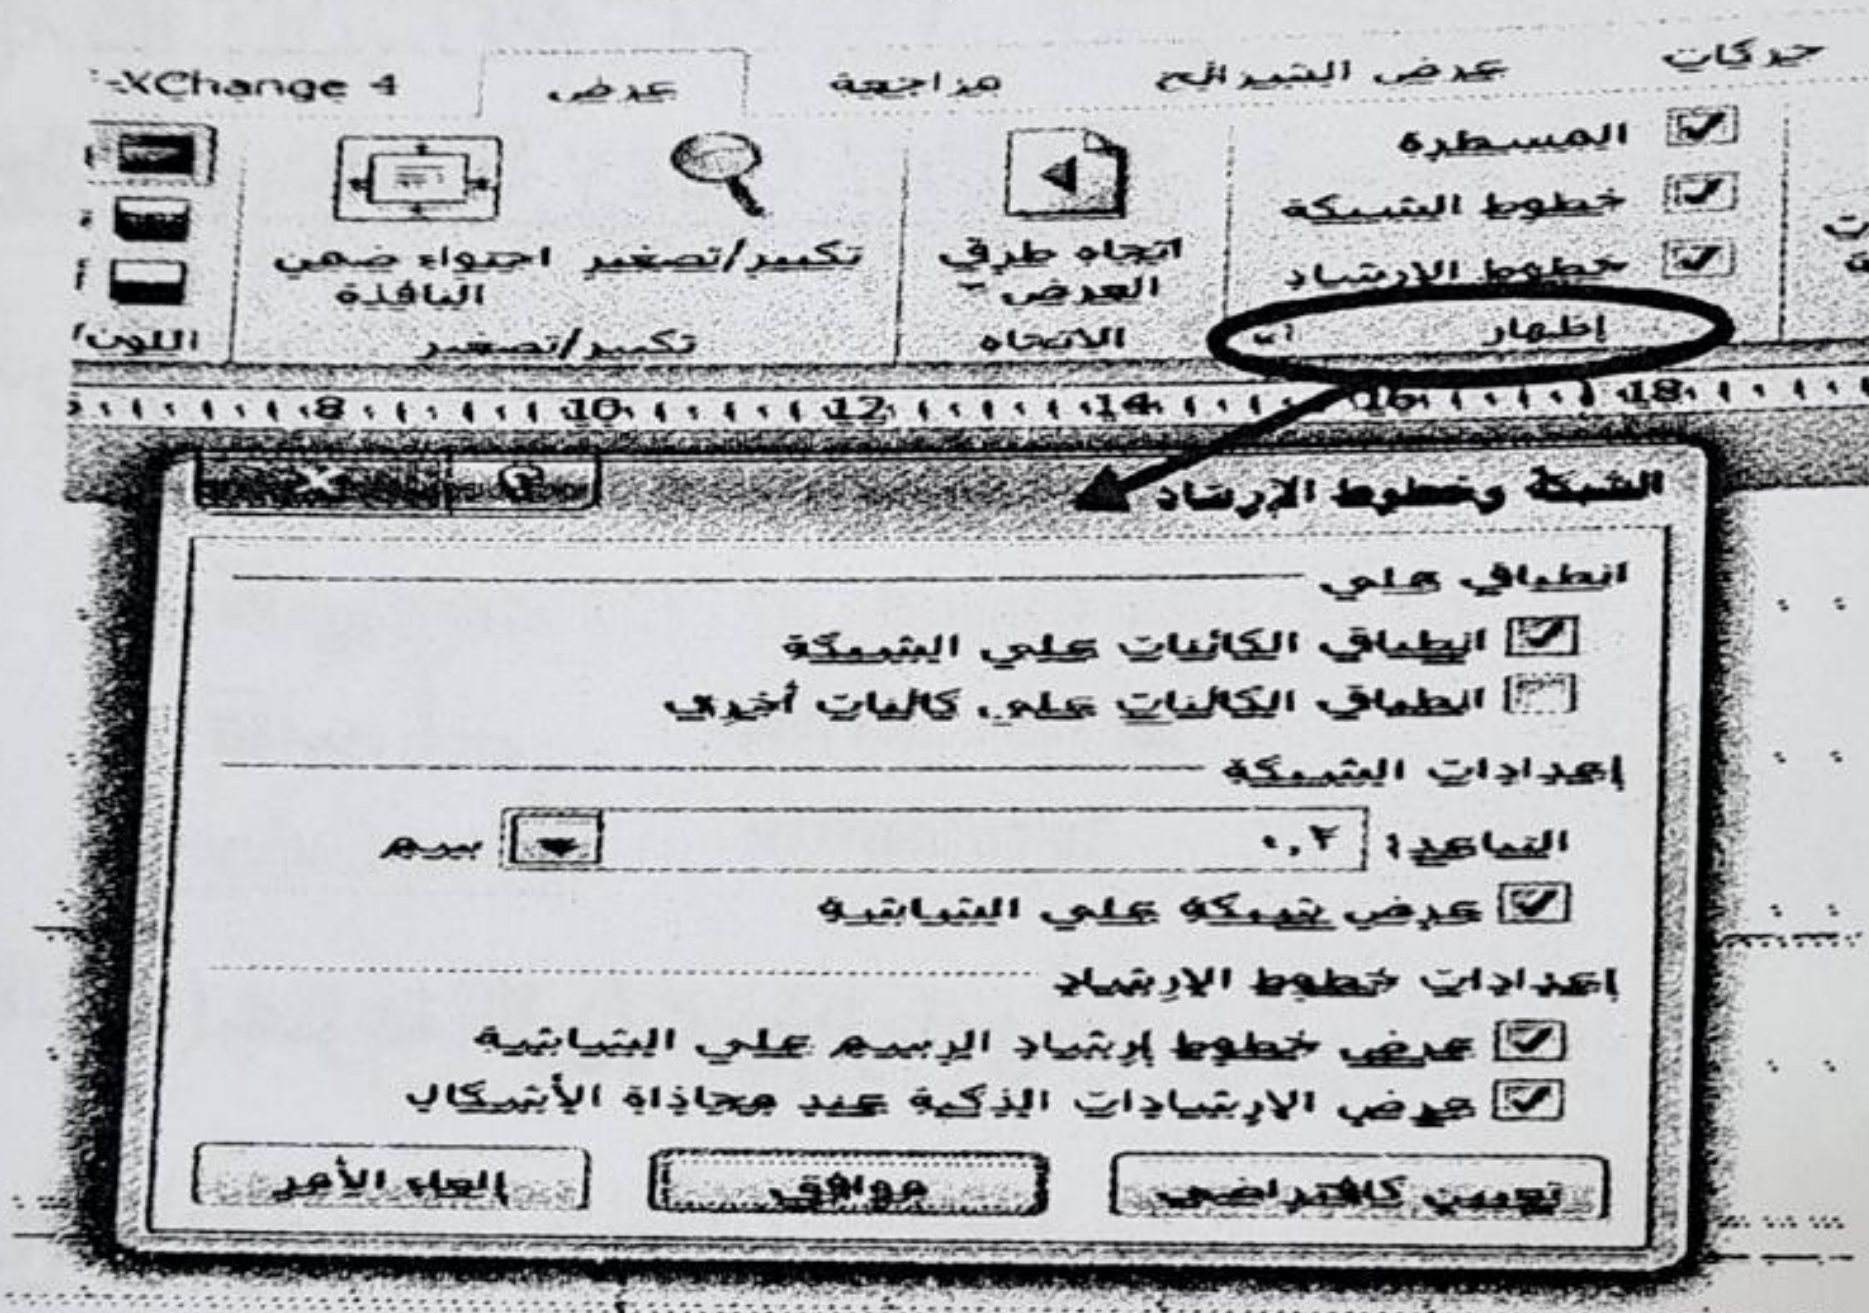 حركات عرض الشرائح مراجعة عرض -XChange 4
المسطرة
خطوط الشبكة
خطوط الإرشاد
اتجاه طرفي العرض
تكبير/تصغير
احتواء ضمن النافذة
إظهار
الاتجاه
تكبير/تصغير
اللون/
8 10 12 14 16 18
الشبكة وخطوط الإرشاد
انطباق على
انطباق الكائنات على الشبكة
انطباق الكائنات على كائنات أخرى
إعدادات الشبكة
التباعد: ٠,٢ سم
عرض شبكة على الشاشة
إعدادات خطوط الإرشاد
عرض خطوط إرشاد الرسم على الشاشة
عرض الإرشادات الذكية عند محاذاة الأشكال
تعيين كافتراضي موافق إلغاء الأمر